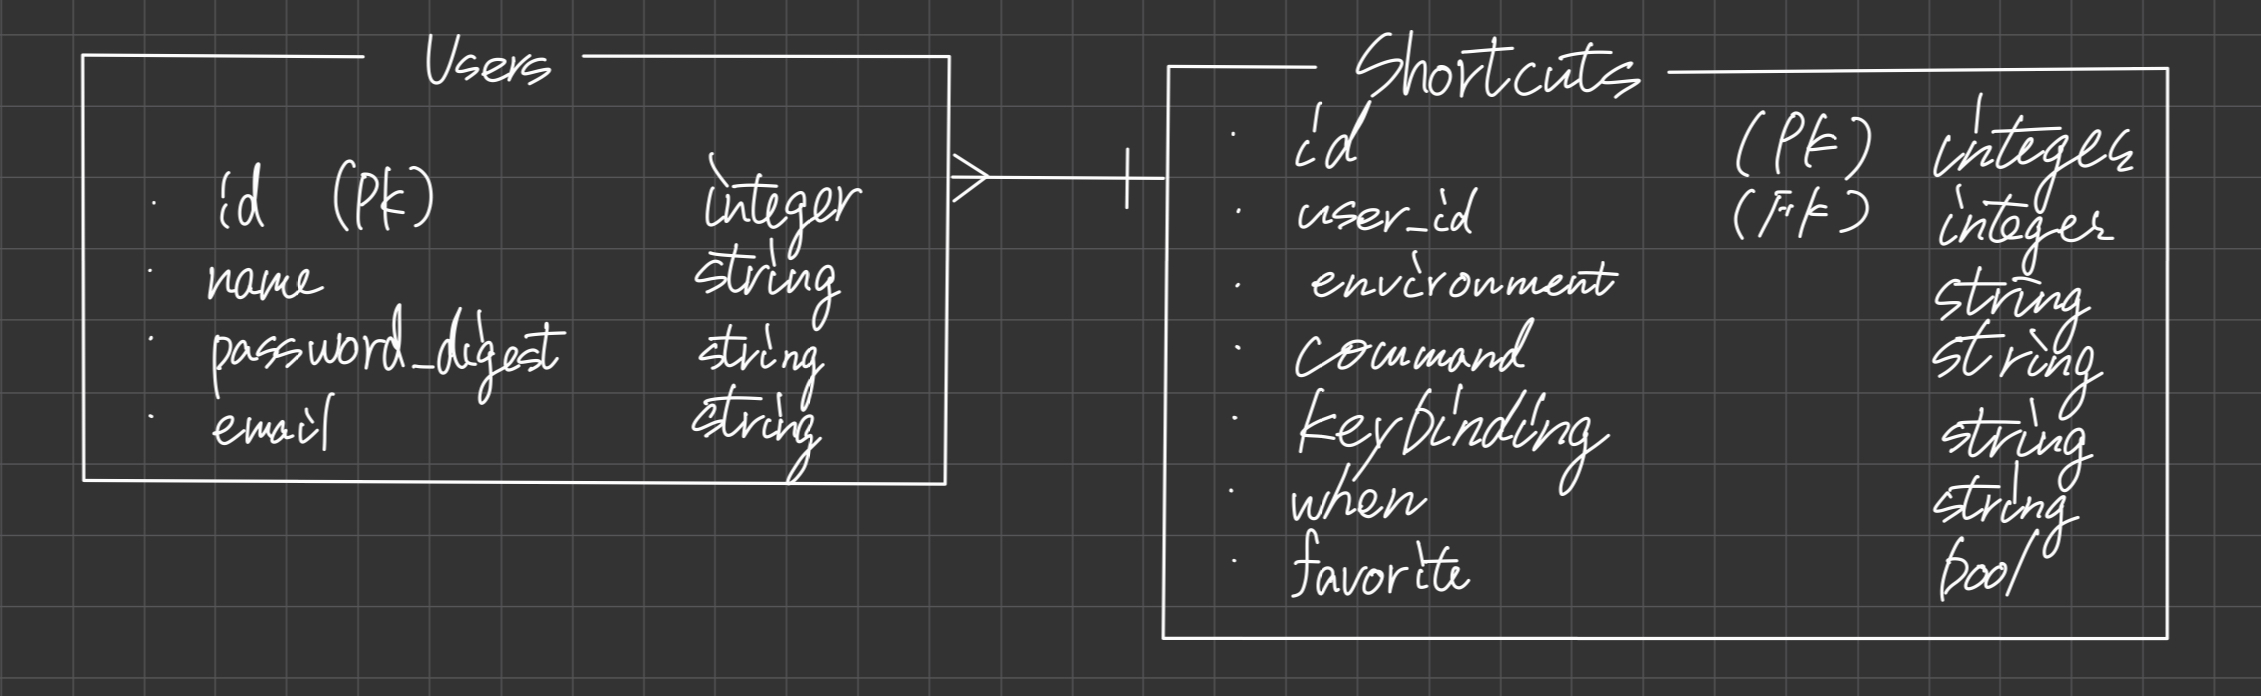 Users
· id (PK) integer
· name string
· password_digest string
· email string
Shortcuts
· id (PK) integer
· user_id (FK) integer
· environment string
· command string
· keybinding string
· when string
· favorite bool